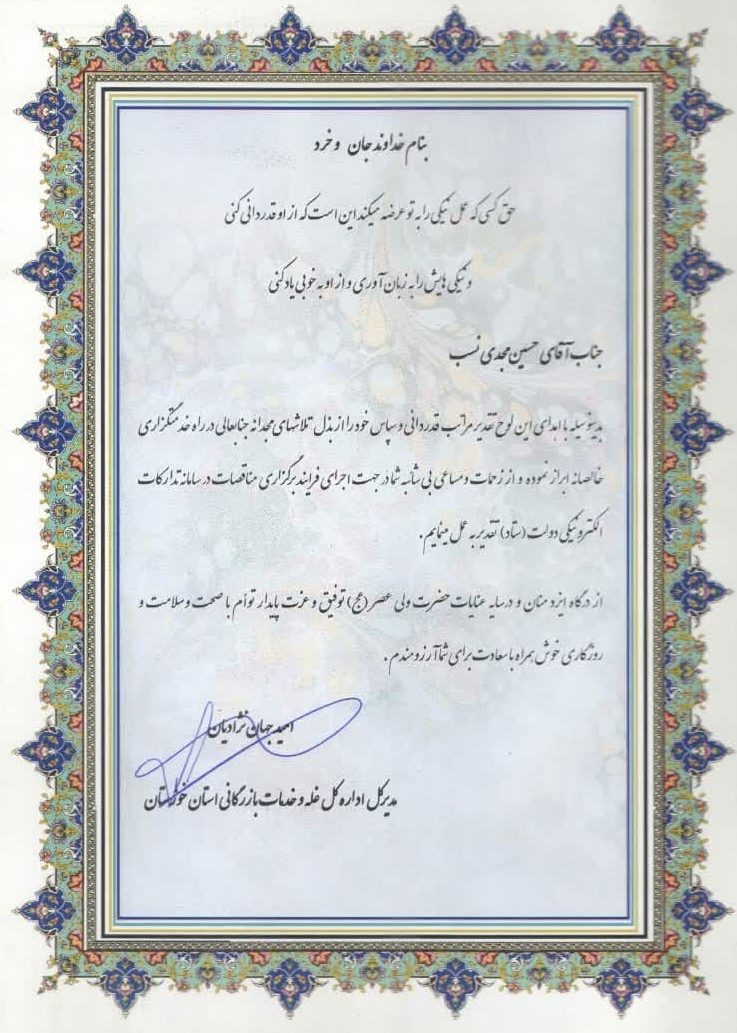 بنام خداوند جان و خرد
حق کسی که عمل نیکی را به تو عرضه میکند این است که از او قدردانی کنی
و نیکی هایش را به زبان آوری و از او به خوبی یاد کنی
جناب آقای حسین مجدی نسب
بدینوسیله با اهدای این لوح تقدیر مراتب قدردانی و سپاس خود را از بذل تلاشهای مجدانه جنابعالی در راه خدمتگزاری
خالصانه ابراز نموده و از زحمات و مساعی بی شائبه شما در جهت اجرای فرایند برگزاری مناقصات در سامانه تدارکات
الکترونیکی دولت (ستاد) تقدیر به عمل مینمایم.
از درگاه ایزد منان و در سایه عنایات حضرت ولی عصر (عج) توفیق و عزت پایدار توأم با صحت و سلامت و
روزگاری خوش همراه با سعادت برای شما آرزومندم.
امید جهانی نژادیان
مدیرکل اداره کل غله و خدمات بازرگانی استان خوزستان